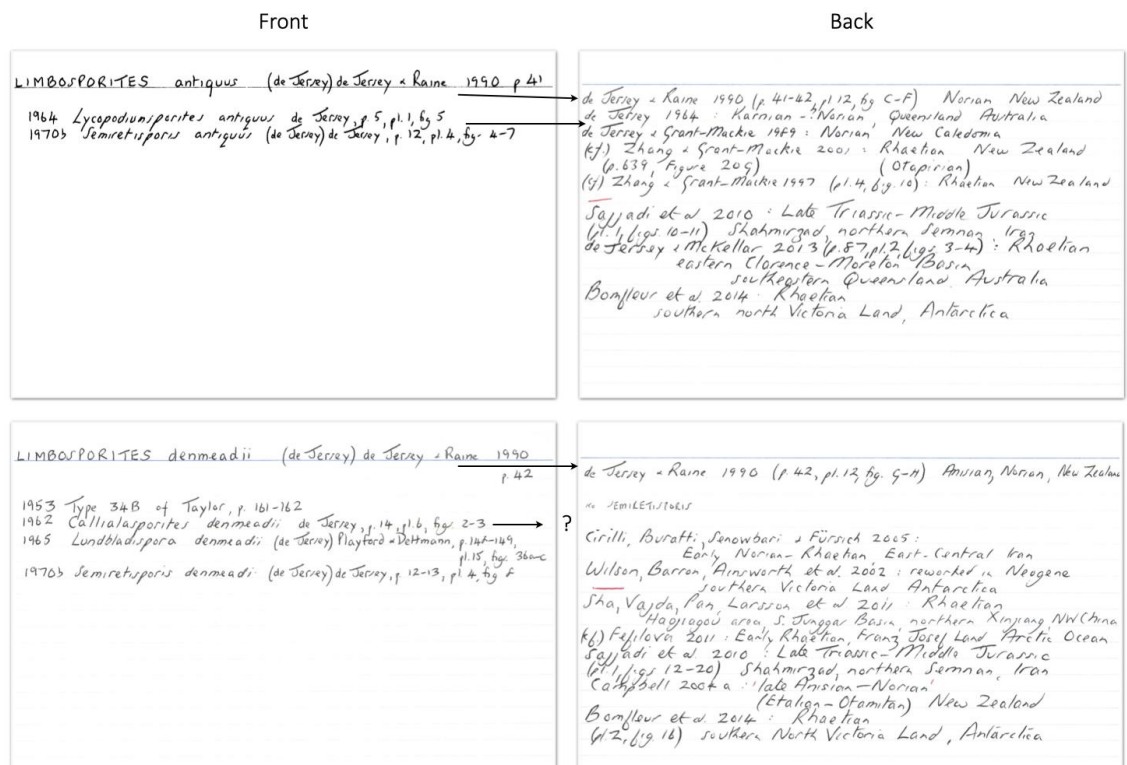 Front
Back
LIMBOSPORITES antiquus (de Jersey) de Jersey & Raine 1990 p 41
1964 Lycopodiumsporites antiquus de Jersey, p. 5, pl. 1, fig 5
1970b Semiretisporis antiquus (de Jersey) de Jersey, p. 12, pl. 4, fig. 4-7
de Jersey & Raine 1990 (p. 41-42, pl. 12, fig C-F) Norian New Zealand
de Jersey 1964 : Karnian - ?Norian, Queensland Australia
de Jersey & Grant-Mackie 1989 : Norian New Caledonia
(cf.) Zhang & Grant-Mackie 2001 : Rhaetian New Zealand
(p. 639, Figure 20G) (Otapirian)
(cf) Zhang & Grant-Mackie 1997 (pl. 4, fig. 10) : Rhaetian New Zealand
Sajjadi et al 2010 : Late Triassic - Middle Jurassic
(pl. 1, figs. 10-11) Shahmirzad, northern Semnan, Iran
de Jersey & McKellar 2013 (p. 87, pl. 2, figs 3-4) : Rhaetian
eastern Clarence - Moreton Basin
southeastern Queensland, Australia
Bomfleur et al. 2014 : Rhaetian
southern north Victoria Land, Antarctica
LIMBOSPORITES denmeadii (de Jersey) de Jersey & Raine 1990
p. 42
1953 Type 34B of Taylor, p. 161-162
1962 Callialasporites denmeadii de Jersey, p. 14, pl. 6, fig. 2-3
?
1965 Lundbladispora denmeadii (de Jersey) Playford & Dettmann, p. 148-149,
pl. 15, fig. 36a-c
1970b Semiretisporis denmeadi (de Jersey) de Jersey, p. 12-13, pl. 4, fig 8
de Jersey & Raine 1990 (p. 42, pl. 12, fig. G-H) Anisian, Norian, New Zealand
SEMIRETISPORIS
Cirilli, Buratti, Senowbari & Fürsich 2005 :
Early Norian - Rhaetian East-Central Iran
Wilson, Barron, Ainsworth et al. 2002 : reworked in Neogene
southern Victoria Land Antarctica
Sha, Vajda, Pan, Larsson et al 2011 : Rhaetian
Haojiagou area, S. Junggar Basin, northern Xinjiang, NW China
(cf.) Fefilova 2011 : Early Rhaetian, Franz Josef Land Arctic Ocean
Sajjadi et al 2010 : Late Triassic - Middle Jurassic
(pl. 1, figs 12-20) Shahmirzad, northern Semnan, Iran
Campbell 2004 a : 'late Anisian - Norian'
(Etalian - Otamitan) New Zealand
Bomfleur et al. 2014 : Rhaetian
(pl. 2, fig 16) southern North Victoria Land, Antarctica